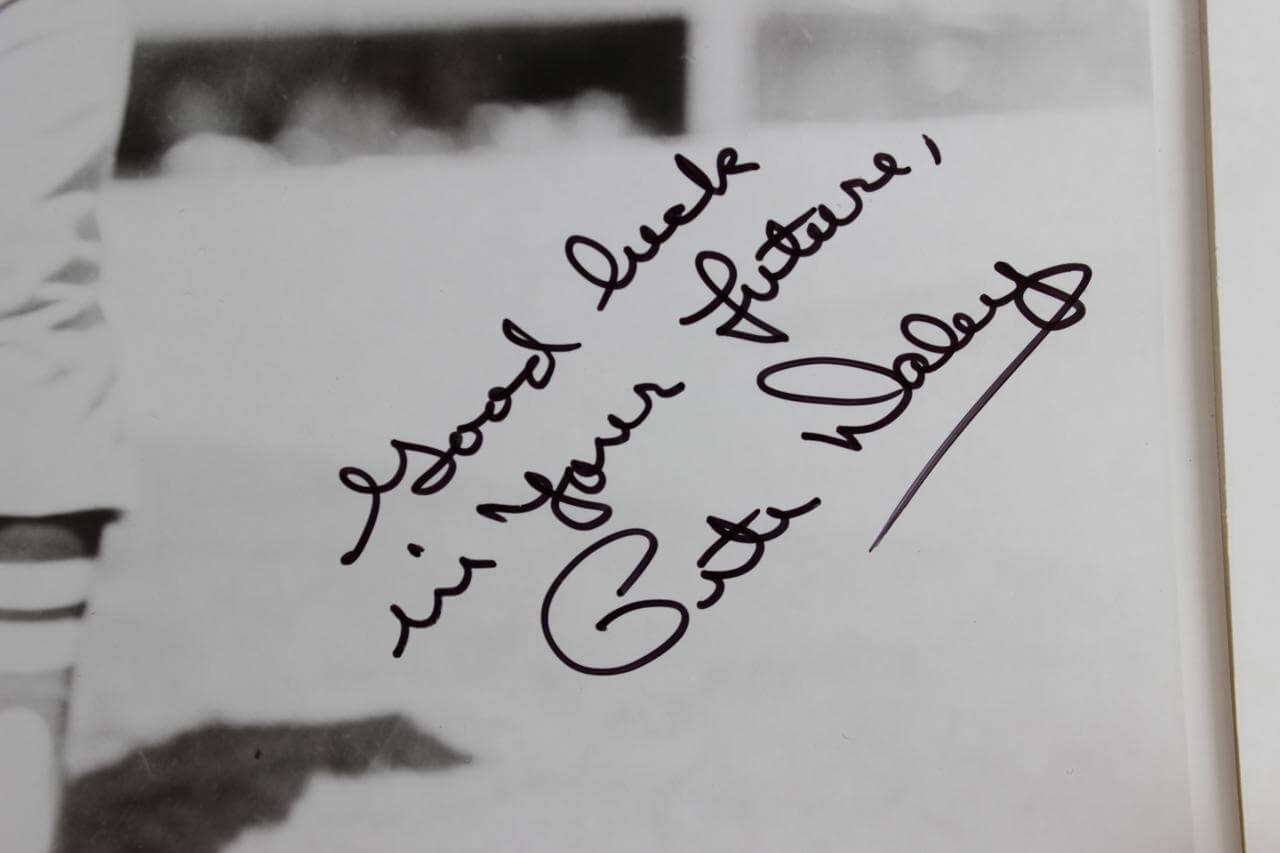 Good luck
in your future,
Pete Daley